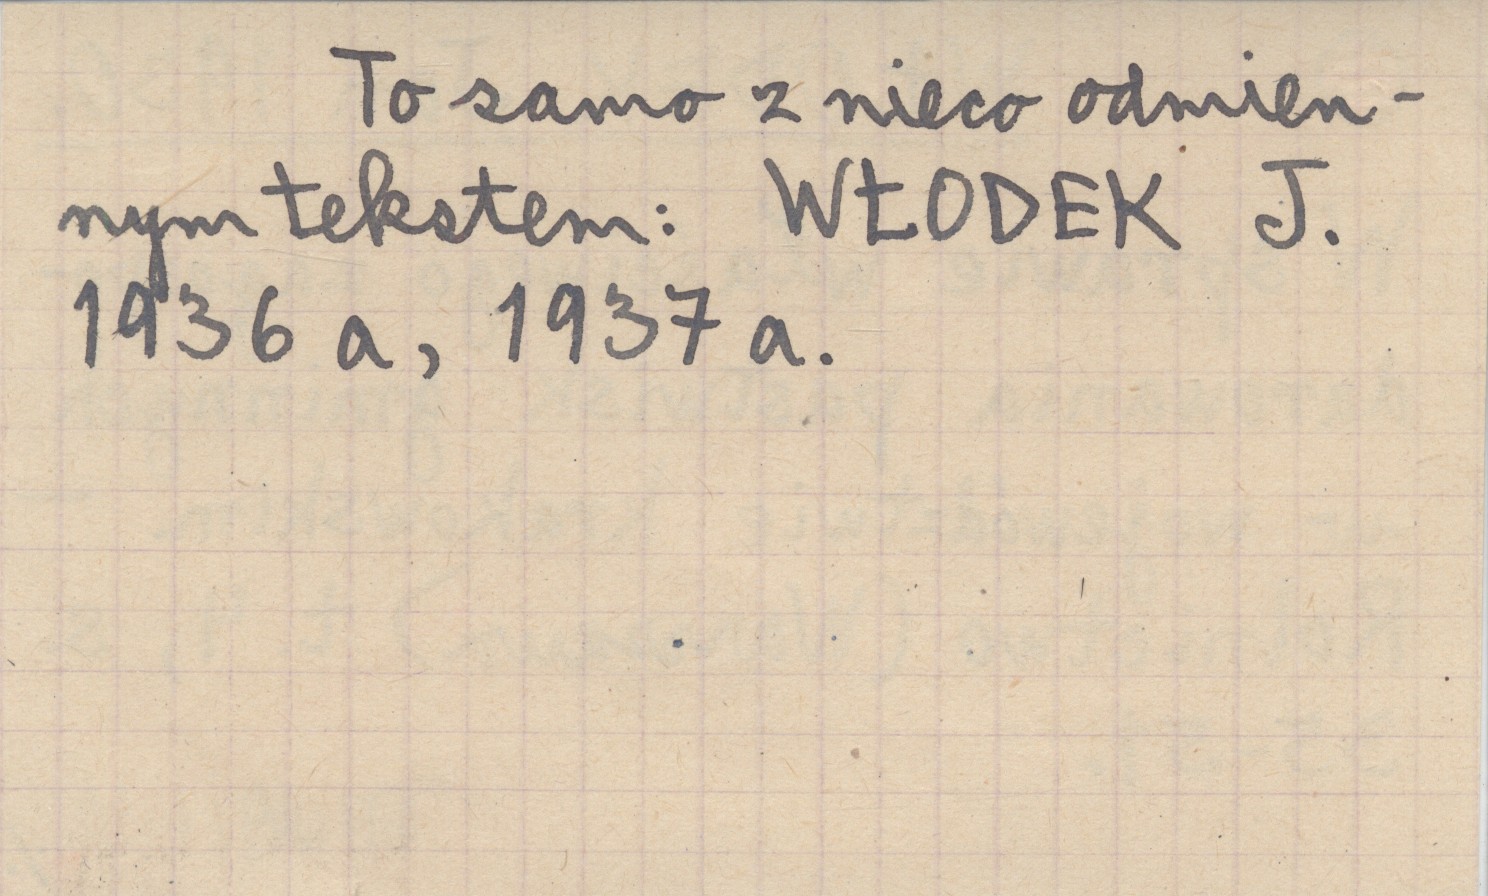 To samo z nieco odmien-
nym tekstem: WŁODEK J.
1936 a, 1937 a.